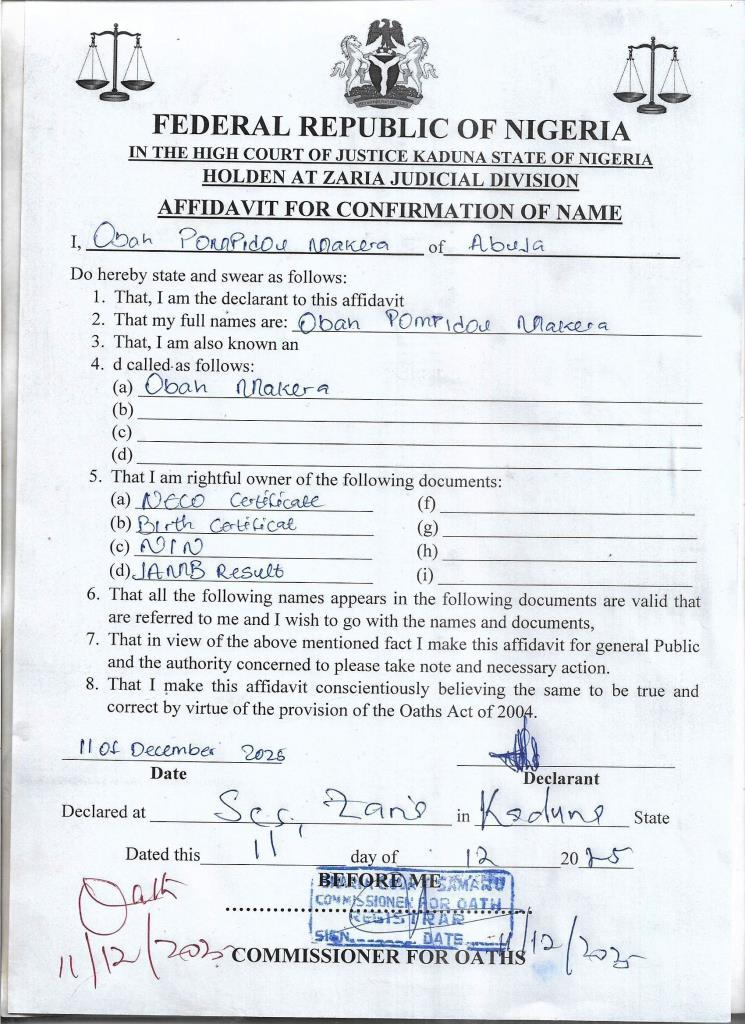 FEDERAL REPUBLIC OF NIGERIA
IN THE HIGH COURT OF JUSTICE KADUNA STATE OF NIGERIA
HOLDEN AT ZARIA JUDICIAL DIVISION
AFFIDAVIT FOR CONFIRMATION OF NAME
I, Obah Pompidou Makera of Abuja
Do hereby state and swear as follows:
1. That, I am the declarant to this affidavit
2. That my full names are: Obah Pompidou Makera
3. That, I am also known an
4. d called as follows:
(a) Obah Makera
(b)
(c)
(d)
5. That I am rightful owner of the following documents:
(a) NECO Certificate (f)
(b) Birth Certifical (g)
(c) NIN (h)
(d) JAMB Result (i)
6. That all the following names appears in the following documents are valid that
are referred to me and I wish to go with the names and documents,
7. That in view of the above mentioned fact I make this affidavit for general Public
and the authority concerned to please take note and necessary action.
8. That I make this affidavit conscientiously believing the same to be true and
correct by virtue of the provision of the Oaths Act of 2004.
11 of December 2025
Date Declarant
Declared at Zaria in Kaduna State
Dated this 11 day of 12 2025
BEFORE ME
SAMARU
COMMISSIONER FOR OATH
REGISTRAR
SIGN DATE 11/12/2025
Oath
11/12/2025
COMMISSIONER FOR OATHS